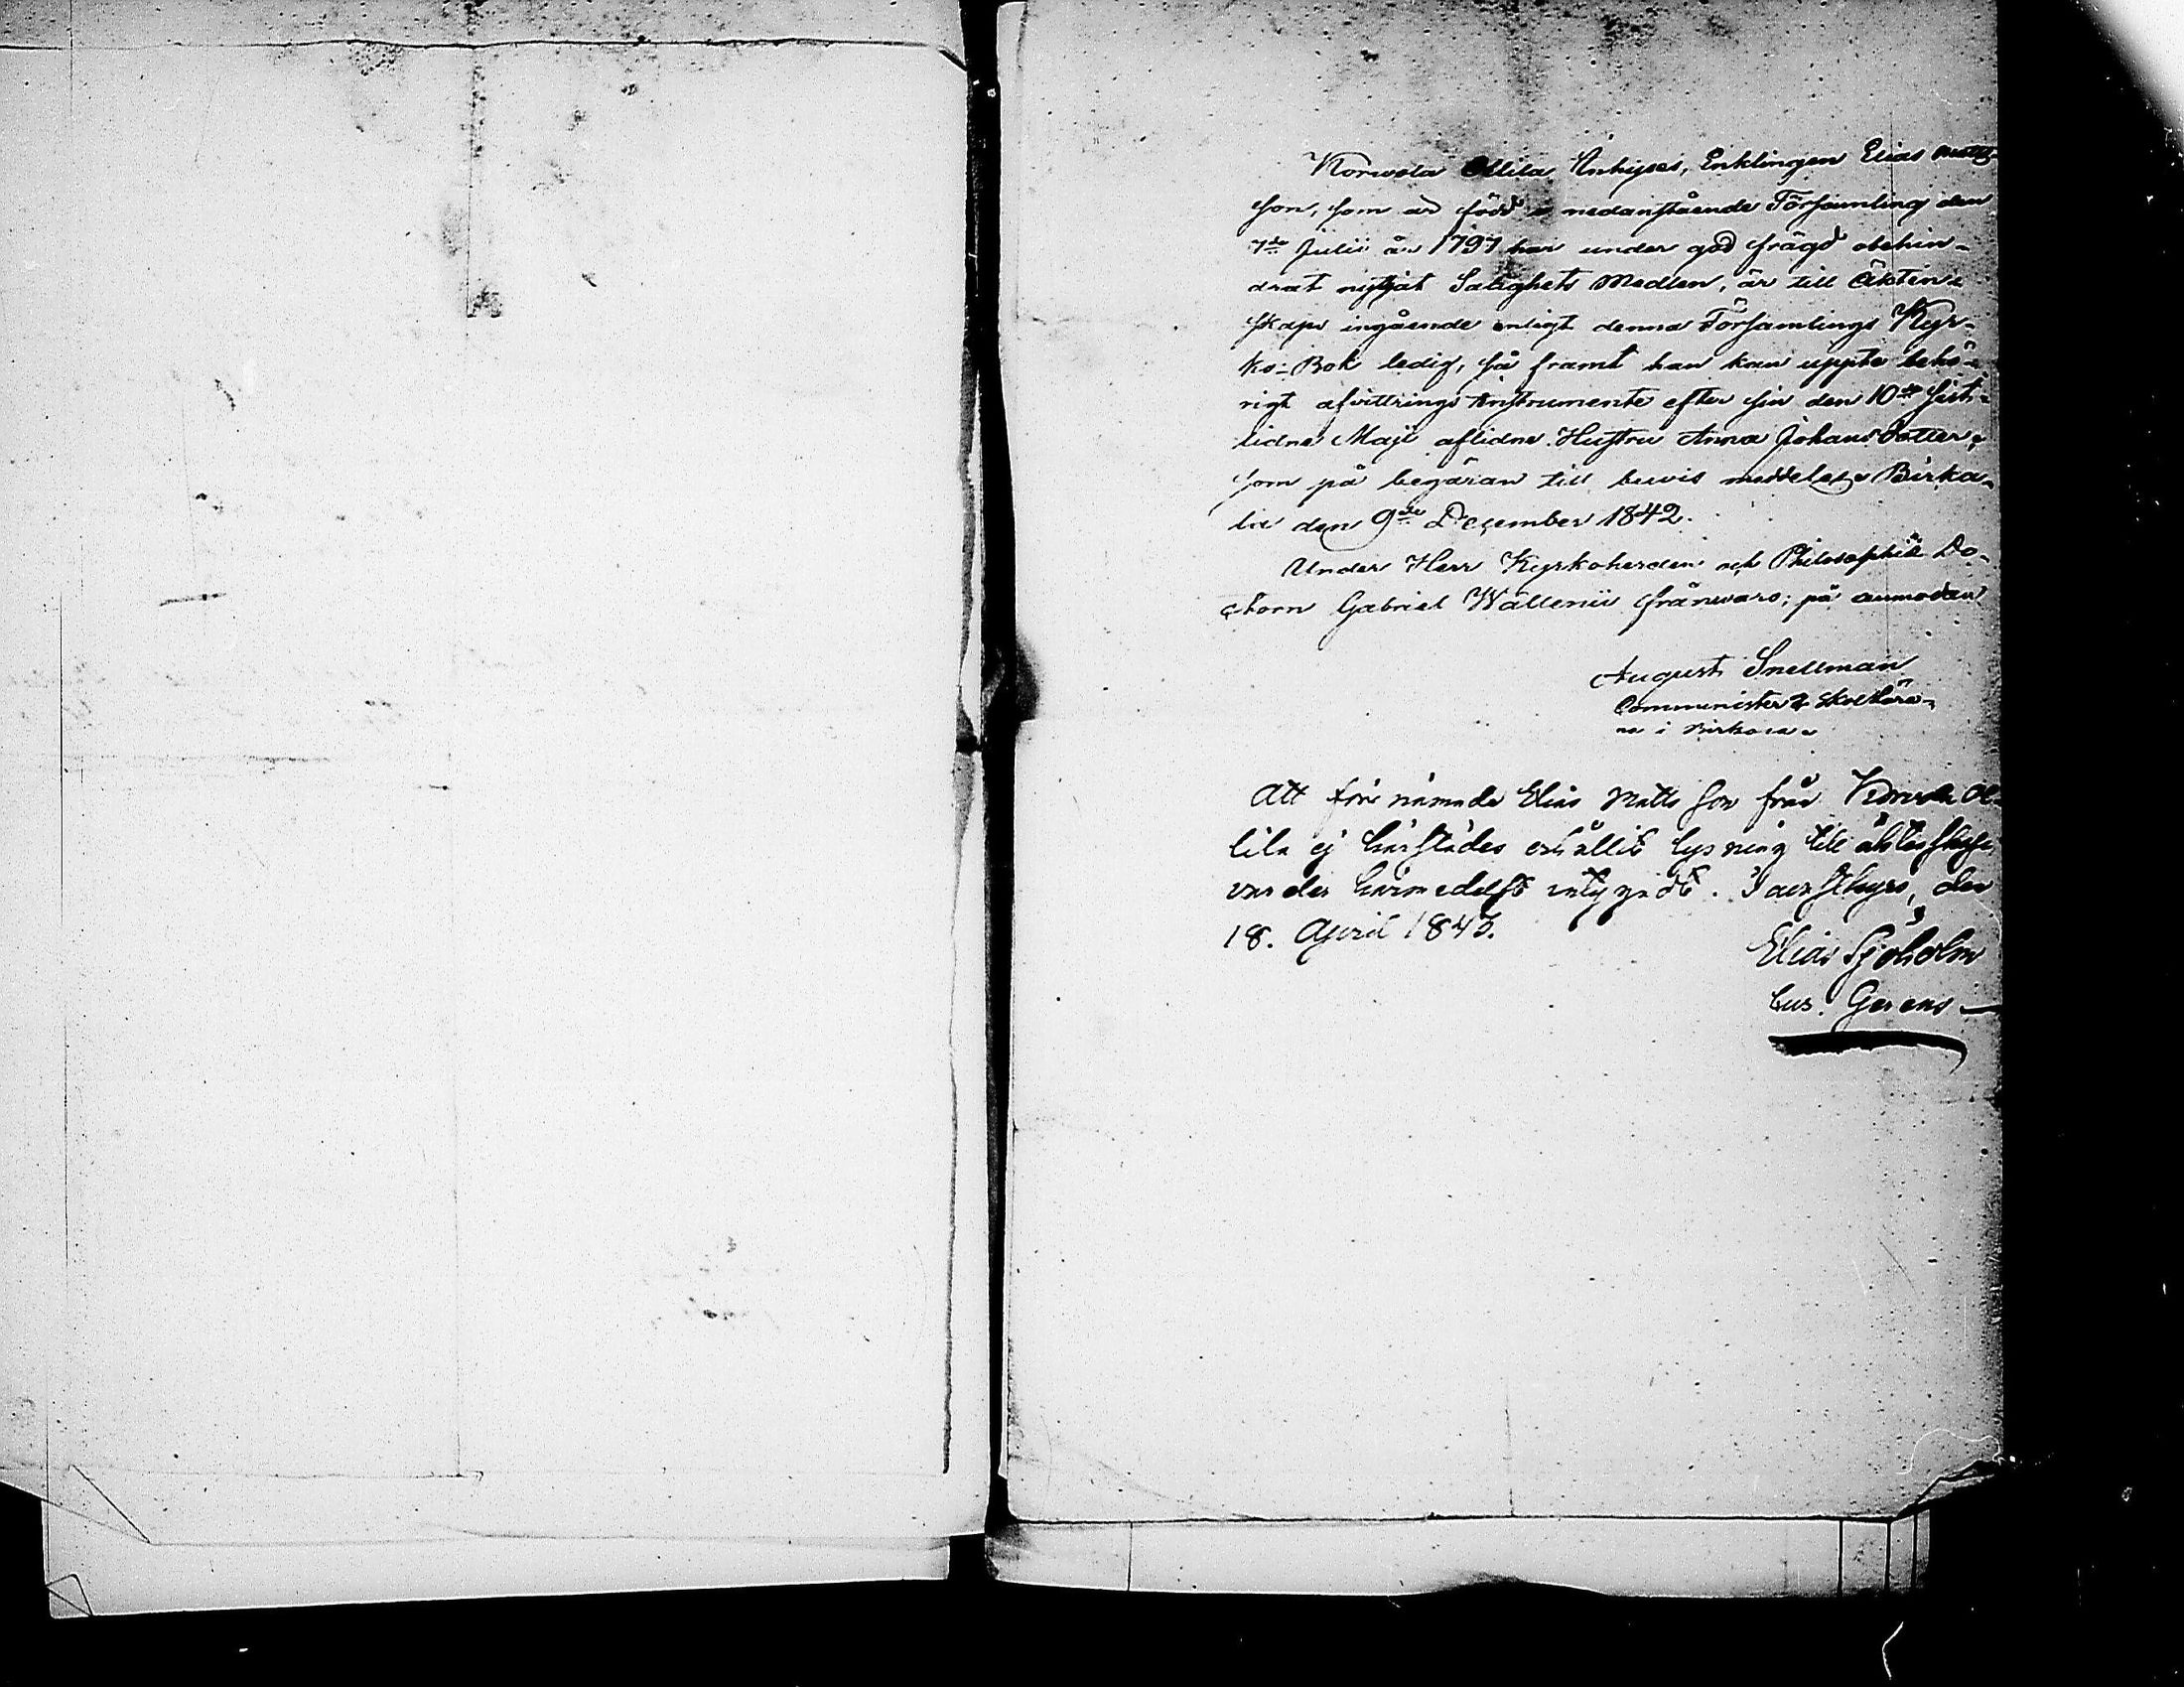 Korwola Ollila Enkyses, Enklingen Elias Matts-
son, som är född i nedanstående Församling den
7de Julii år 1797 har under god frägd obehin-
drat nyttjat Salighets Medlen, är till Äkten-
skaps ingående enligt denna Församlings Kyr-
ko-Bok ledig, så framt han kan uppte behö-
rigt afvittrings Instrumente efter sin den 10de sist-
lidne Maji aflidne Hustru Anna Johansdotter;
som på begäran till bewis meddelas. Birka-
la den 9de December 1842.
Under Herr Kyrkoherden och Philosophiæ Do-
ctorn Gabriel Wallenii frånwaro; på anmodan
August Snellman
Communister & Skollära-
re i Birkala.
Att förenämnde Elias Matts son från Korwola Ol-
lila ej härstädes erhållit lysning till äktenskap,
varder härmedelst intygadt. Ikaliskyro, den
18. April 1843.
Elias Sjöholm
Cur. Gerens